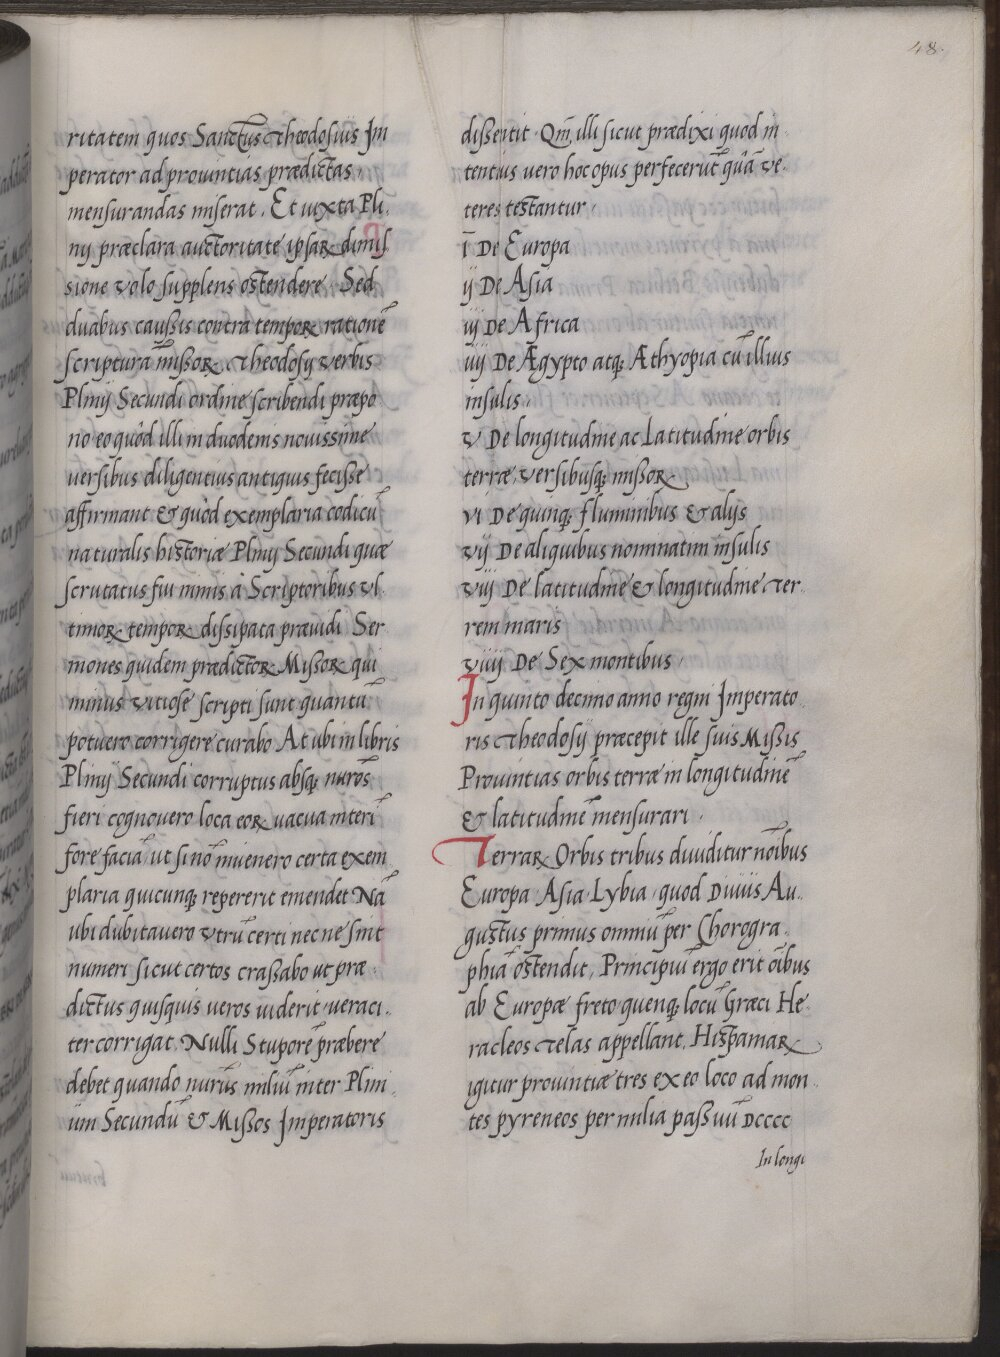 48.
ritatem quos Sanctus Theodosius Im
perator ad prouintias prædictas
mensurandas miserat. Et iuxta Pli.
nÿ præclara auctoritate ipsaꝝ dimiſ
sione volo supplens ostendere. Sed
duabus caußis contra tempoꝝ rationē
scripturā mißoꝝ. Theodosÿ verbis
Plinÿ Secundi ordine scribendi præpo
no eo quòd illi in duodenis nouissime
uersibus diligentius antiquis fecisse
affirmant & quòd exemplaria codicū
naturalis historiæ Plinÿ Secundi quæ
scrutatus fui nimis à Scriptoribus vl.
timoꝝ tempoꝝ dißipata præuidi Ser
mones quidem prædictoꝝ Mißoꝝ qui
minus vitiose scripti sunt quantū
potuero corrigere curabo At ubi in libris
Plinÿ Secundi corruptus absqꝫ nūros
fieri cognouero loca eoꝝ uacua interī
fore faciā ut si nō inuenero certa exem
plaria quicunqꝫ repererit emendet Nā
ubi dubitauero vtrū certi nec ne sint
numeri sicut certos craßabo ut præ.
dictus quisquis ueros uiderit ueraci.
ter corrigat. Nulli Stuporē præbere
debet quando nurūs miliū inter Plini
ium Secundū & Mißos Imperatoris
dißentit. Qm̄ illi sicut prædixi quod in
tentius uero hoc opus perfecerūt quā ve.
teres testantur.
i De Europa
ij De Asia
iij De Africa
iiij De Ægypto atqꝫ Æthyopia cū illius
insulis.
v De longitudine ac Latitudine orbis
terræ, versibusqꝫ mißoꝝ
vi De quinqꝫ fluminibus & alÿs
vij De aliquibus nominatim insulis
viij De latitudine & longitudine ter
rem maris
viiij De Sex montibus.
In quinto decimo anno regni Imperato
ris Theodosÿ præcepit ille suis Mißis
Prouintias orbis terræ in longitudinē
& latitudinē mensurari.
Terraꝝ Orbis tribus diuiditur nōibus
Europa Asia Lybia quod Diuus Au.
gustus primus omniū per Chorogra.
phiā ostendit. Principiū ergo erit oībus
ab Europæ freto quenqꝫ locū Græci He.
racleos Telas appellant. Hispaniaꝝ
igitur prouintiæ tres ex eo loco ad mon
tes pyreneos per milia paßuū DCCCC
In longi